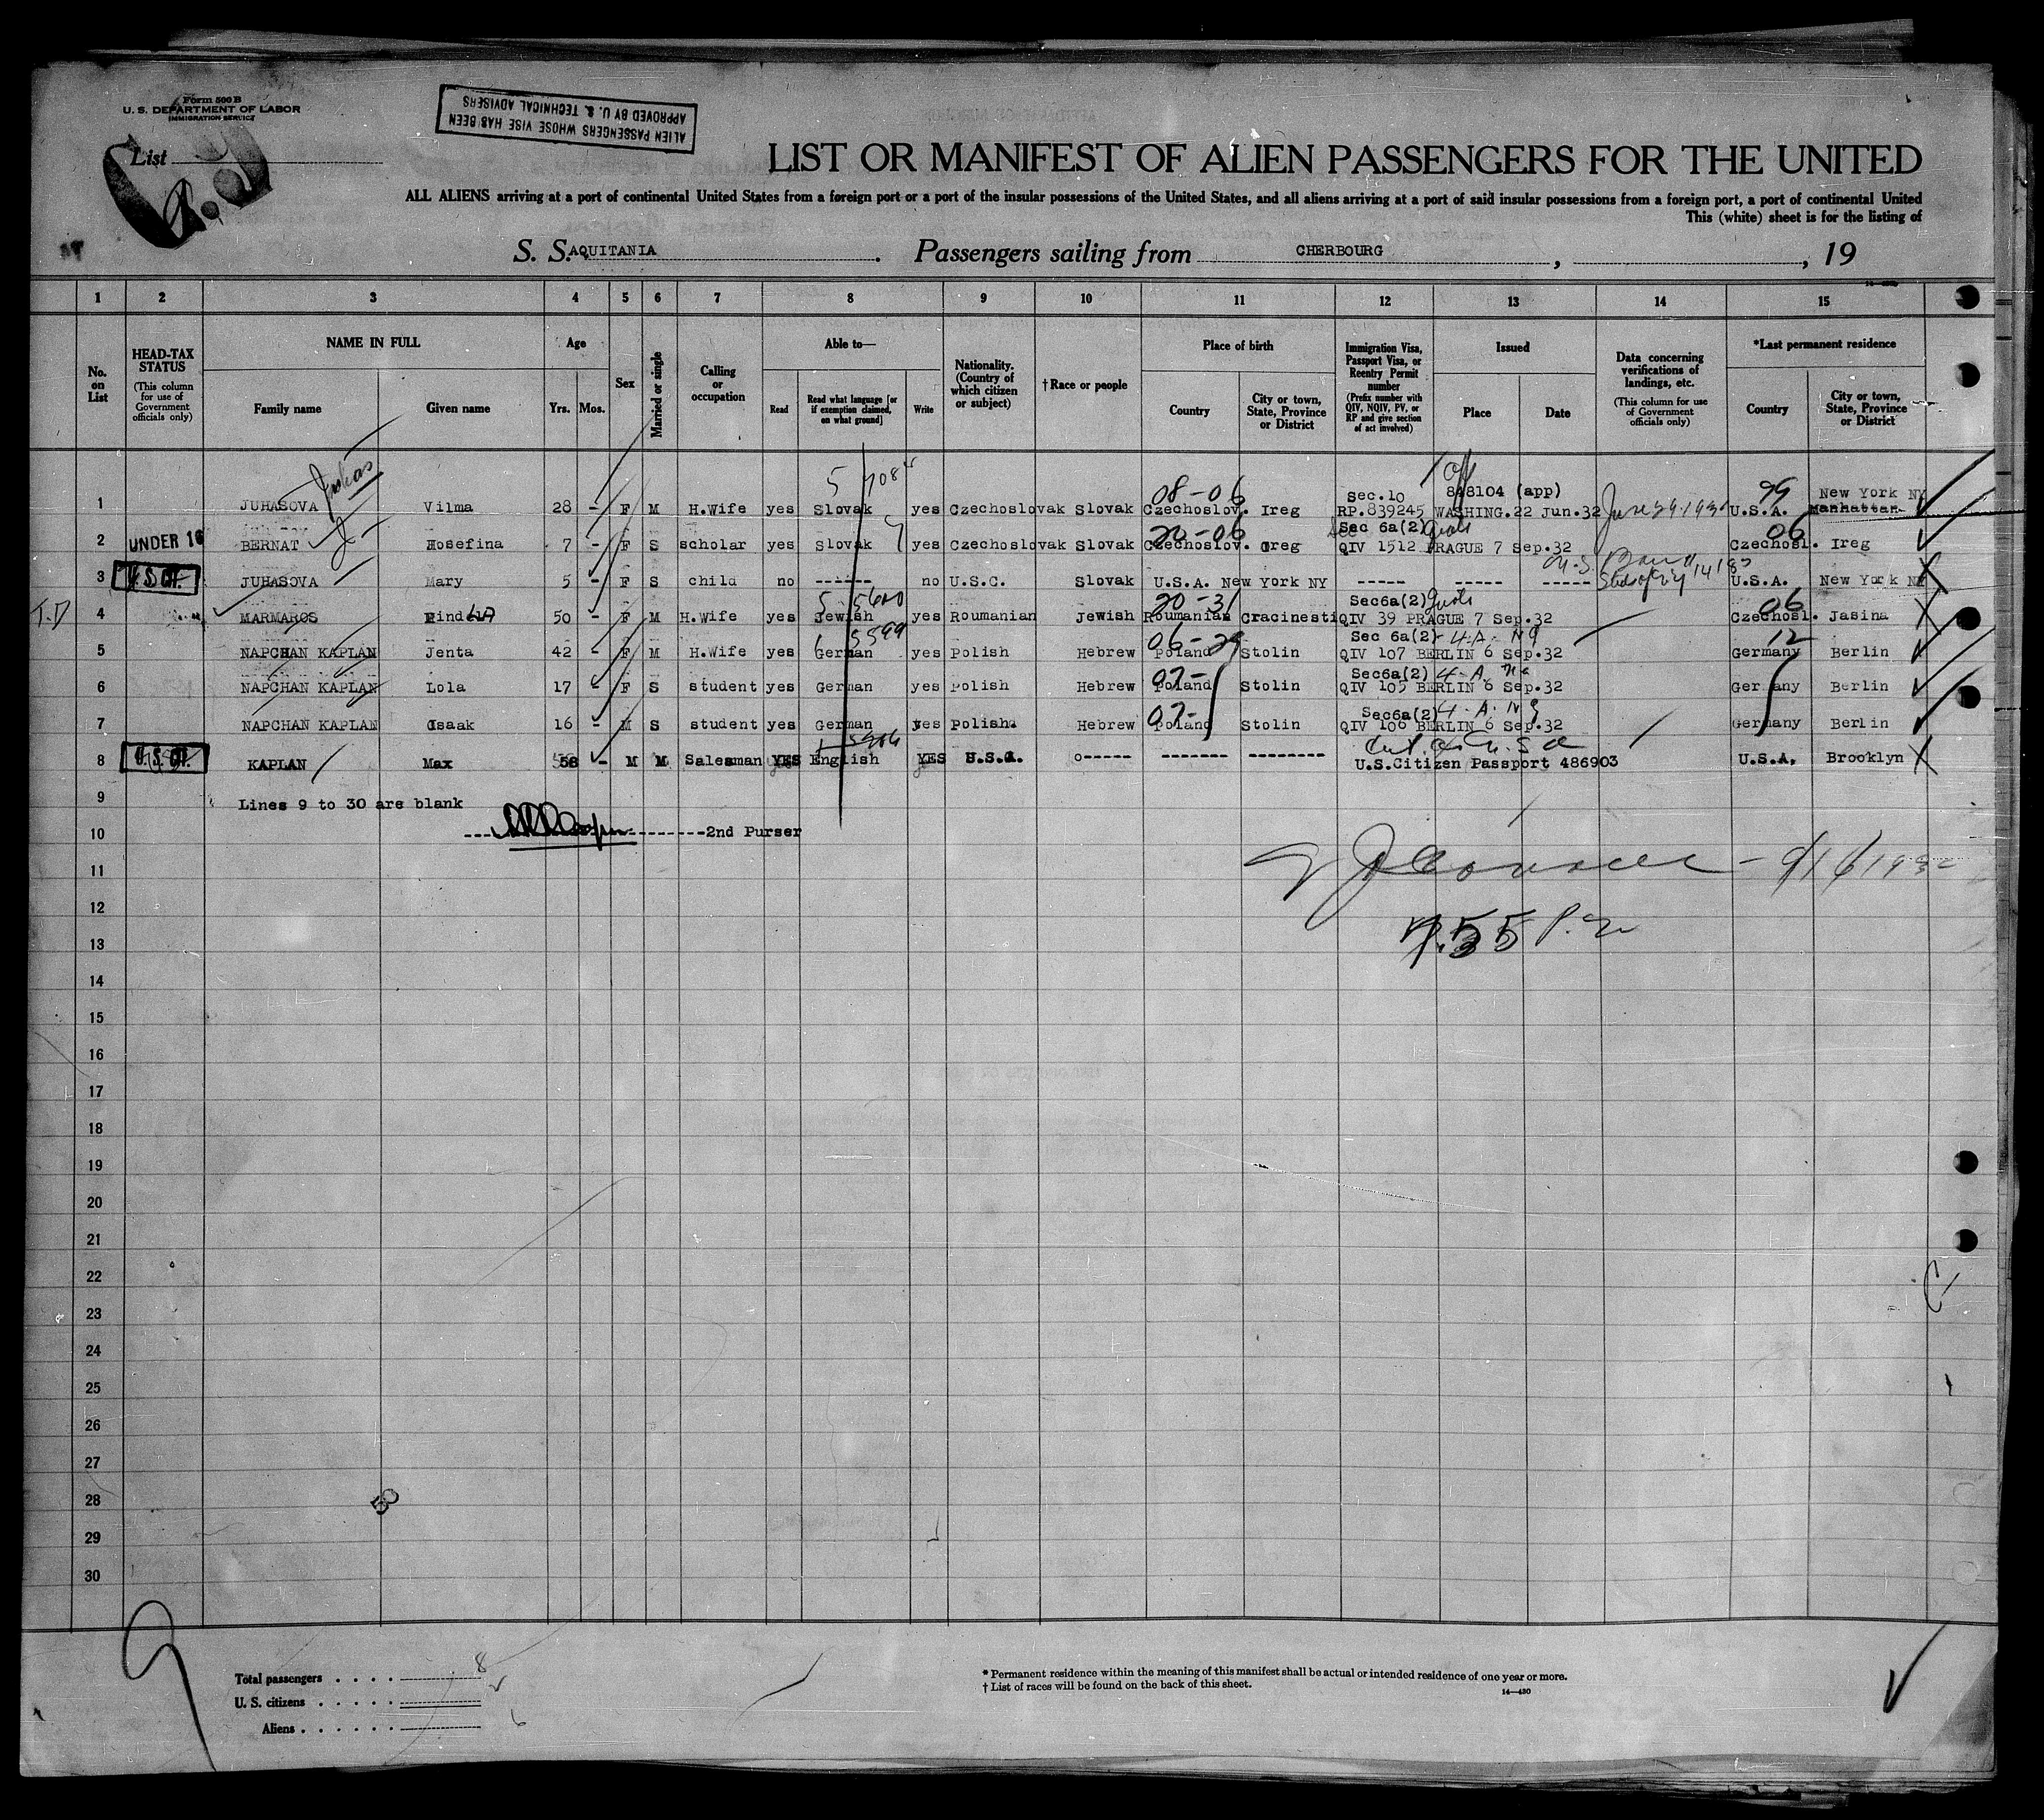 Form 500 B
U. S. DEPARTMENT OF LABOR
IMMIGRATION SERVICE
ALIEN PASSENGERS WHOSE VISE HAS BEEN
APPROVED BY U. S. TECHNICAL ADVISERS
List
LIST OR MANIFEST OF ALIEN PASSENGERS FOR THE UNITED
ALL ALIENS arriving at a port of continental United States from a foreign port or a port of the insular possessions of the United States, and all aliens arriving at a port of said insular possessions from a foreign port, a port of continental United
This (white) sheet is for the listing of
S. S. AQUITANIA . Passengers sailing from CHERBOURG , , 19
1 2 3 4 5 6 7 8 9 10 11 12 13 14 15
No. on List
HEAD-TAX STATUS (This column for use of Government officials only)
NAME IN FULL Family name Given name
Age Yrs. Mos.
Sex
Married or single
Calling or occupation
Able to— Read Read what language [or if exemption claimed, on what ground] Write
Nationality. (Country of which citizen or subject)
† Race or people
Place of birth Country City or town, State, Province or District
Immigration Visa, Passport Visa, or Reentry Permit number (Prefix number with QIV, NQIV, PV, or RP and give section of act involved)
Issued Place Date
Data concerning verifications of landings, etc. (This column for use of Government officials only)
*Last permanent residence Country City or town, State, Province or District
Juhas
5 708
08-06 Sec.10 848104 (app) 99 New York NY
1 JUHASOVA Vilma 28 - F M H.Wife yes Slovak yes Czechoslovak Slovak Czechoslov. Ireg RP.839245 WASHING. 22 Jun.32 U.S.A. Manhattan
20-06 Sec 6a(2) Quota 06
2 UNDER 16 BERNAT Josefina 7 - F S scholar yes Slovak yes Czechoslovak Slovak Czechoslov. Ireg QIV 1512 PRAGUE 7 Sep.32 Czechosl. Ireg
3 U.S.CIT. JUHASOVA Mary 5 - F S child no ------ no U.S.C. Slovak U.S.A. New York NY ----- ----- ----- U.S.A. New York NY
T.D 5 5600 20-31 Sec6a(2) Quota 06
4 MARMAROS 50 - F M H.Wife yes Jewish yes Roumanian Jewish Roumanian Cracinesti QIV 39 PRAGUE 7 Sep.32 Czechosl. Jasina
5599 06-29 Sec 6a(2) 12
5 NAPCHAN KAPLAN Jenta 42 - F M H.Wife yes German yes Polish Hebrew Poland Stolin QIV 107 BERLIN 6 Sep.32 Germany Berlin
07- Sec6a(2)
6 NAPCHAN KAPLAN Lola 17 - F S student yes German yes Polish Hebrew Poland Stolin QIV 105 BERLIN 6 Sep.32 Germany Berlin
07- Sec6a(2)
7 NAPCHAN KAPLAN Isaak 16 - M S student yes German yes Polish Hebrew Poland Stolin QIV 106 BERLIN 6 Sep.32 Germany Berlin
8 U.S.CIT. KAPLAN Max 58 - M M Salesman YES English YES U.S.A. ------ -------- -------- U.S.Citizen Passport 486903 U.S.A. Brooklyn
9 Lines 9 to 30 are blank
10 2nd Purser
11 9/16/1932
12
13 7.55 P.m
14
15
16
17
18
19
20
21
22
23
24
25
26
27
28 50
29
30
Total passengers . . . . 8
U. S. citizens . . . . . 2
Aliens . . . . . . 6
* Permanent residence within the meaning of this manifest shall be actual or intended residence of one year or more.
† List of races will be found on the back of this sheet.
14—430